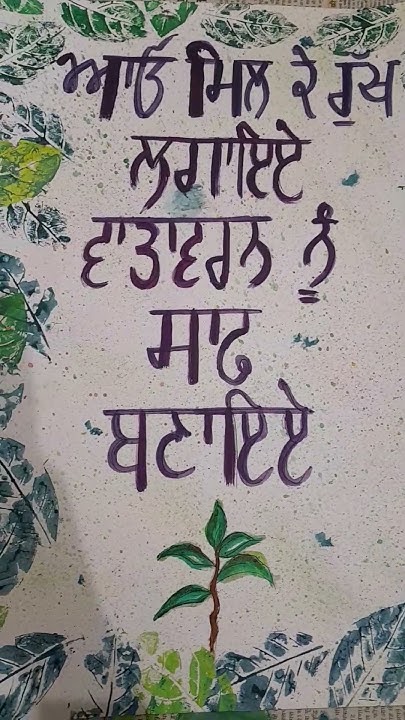 ਆਓ ਮਿਲ ਕੇ ਰੁੱਖ
ਲਗਾਇਏ
ਵਾਤਾਵਰਨ ਨੂੰ
ਸਾਫ
ਬਣਾਇਏ